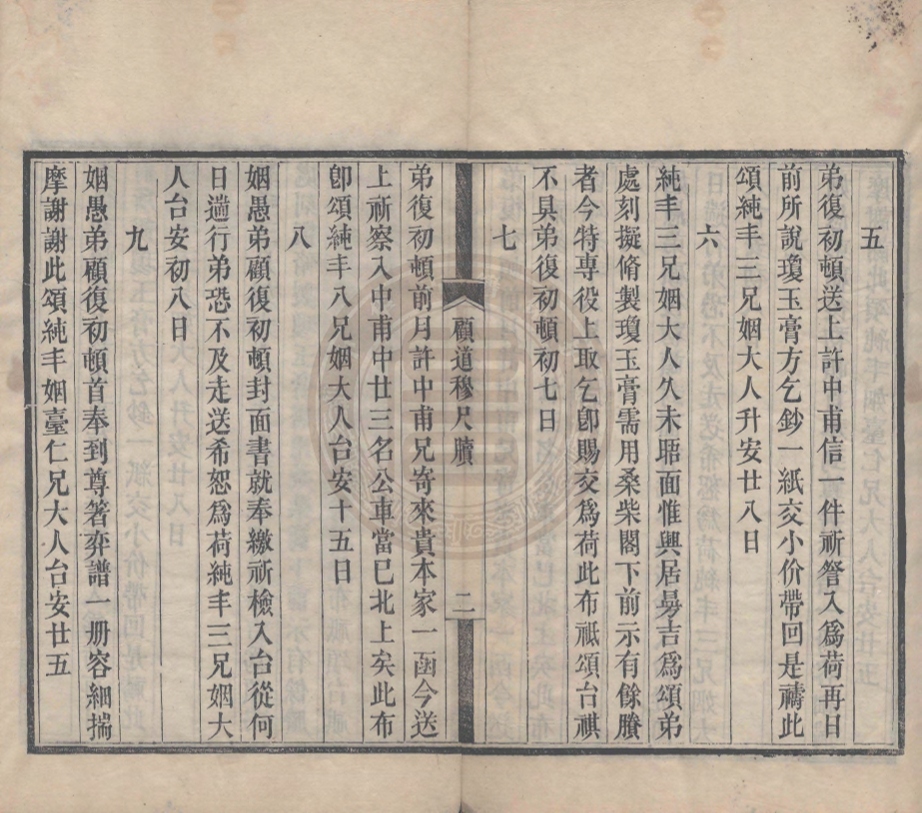 五
弟復初頓送上許中甫信一件祈詧入爲荷再日
前所說瓊玉膏方乞鈔一紙交小价帶回是禱此
頌純丰三兄姻大人升安廿八日
六
純丰三兄姻大人久未晤面惟興居曷吉爲頌弟
處刻擬脩製瓊玉膏需用桑柴閣下前示有餘賸
者今特專役上取乞卽賜交爲荷此布祗頌台祺
不具弟復初頓初七日
七
顧道穆尺牘
二
弟復初頓前月許中甫兄寄來貴本家一函今送
上祈察入中甫中廿三名公車當已北上矣此布
卽頌純丰八兄姻大人台安十五日
八
姻愚弟顧復初頓封面書就奉繳祈檢入台從何
日遄行弟恐不及走送希恕爲荷純丰三兄姻大
人台安初八日
九
姻愚弟顧復初頓首奉到尊箸弈譜一册容細揣
摩謝謝此頌純丰姻臺仁兄大人台安廿五